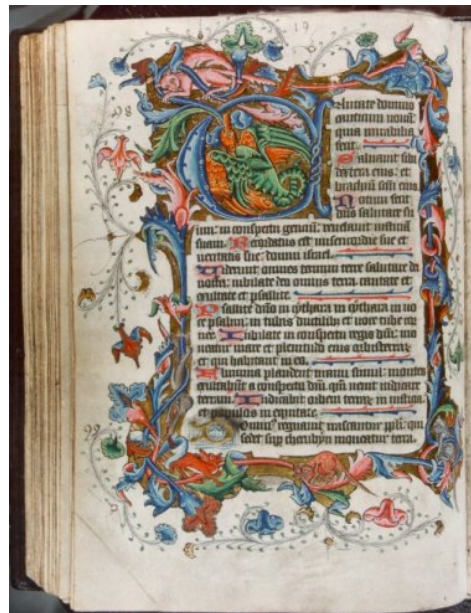 19
antate domino
canticum novu
quia mirabilia
fecit.
Salvavit sibi
dextera eius: et
brachiu scm eius.
Notum fecit
dns salutare su
um: in conspectu gentiu revelavit iusticia
suam. Recordatus est misericordie sue et
veritatis sue: domui israel.
Viderunt omnes termini terre salutare dei
nostri. iubilate deo omnis terra cantate et
exultate et psallite.
Psallite dno in cythara in cythara in vo
ce psalmi: in tubis ductilibus et voce tube cor
nee. Iubilate in conspectu regis dni: mo
veatur mare et plenitudo eius orbis terrar
et qui habitant in eo.
Flumina plaudent manu simul: montes
exultabut a conspectu dni qm venit iudicare
terram. Iudicabit orbem terrar in iusticia.
et populos in equitate.
Dominus regnavit irascantur ppli: qui
sedet sup cherubyn moveatur terra.
98
99